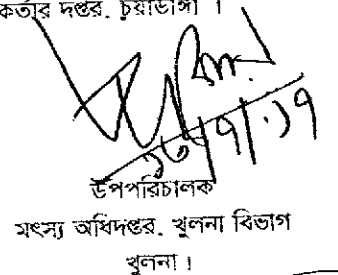 কর্তার দপ্তর, চুয়াডাঙ্গা ।
উপপরিচালক
মৎস্য অধিদপ্তর, খুলনা বিভাগ
খুলনা ।